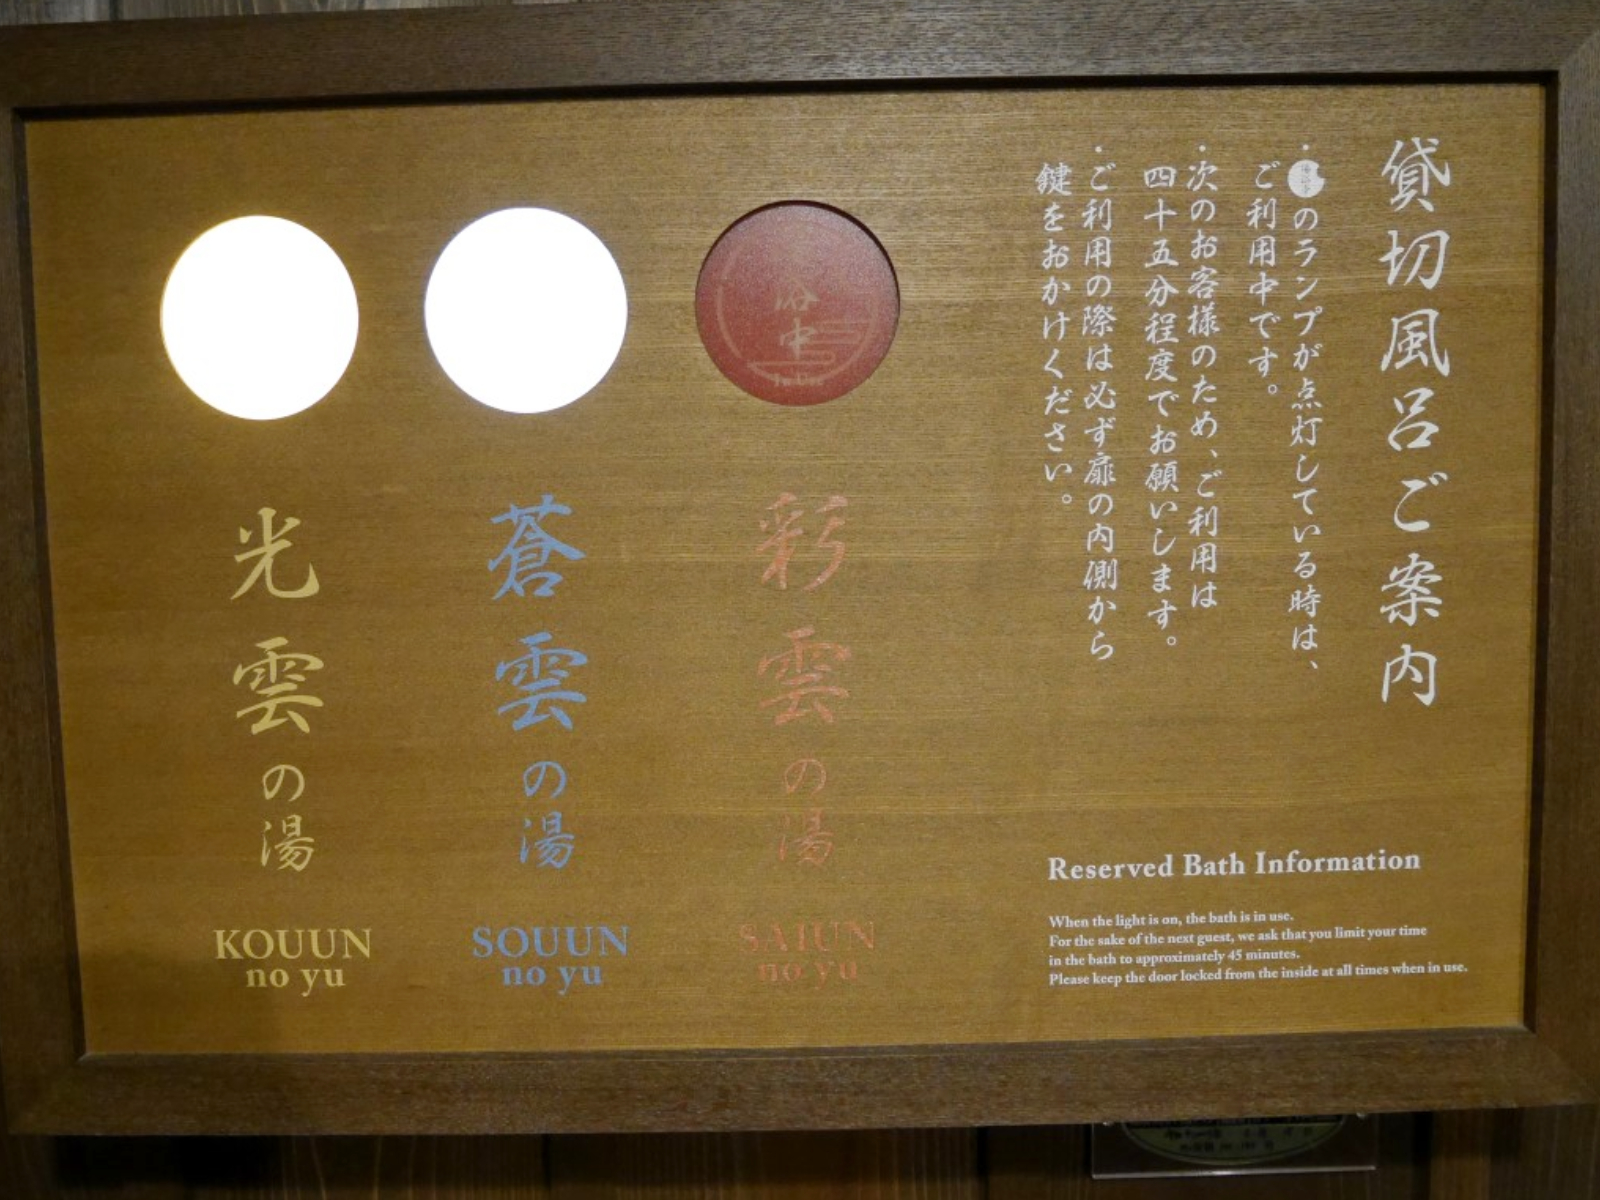 貸切風呂ご案内
・のランプが点灯している時は、
ご利用中です。
・次のお客様のため、ご利用は
四十五分程度でお願いします。
・ご利用の際は必ず扉の内側から
鍵をおかけください。
浴中
In Use
彩雲の湯
SAIUN
no yu
蒼雲の湯
SOUUN
no yu
光雲の湯
KOUUN
no yu
Reserved Bath Information
When the light is on, the bath is in use.
For the sake of the next guest, we ask that you limit your time
in the bath to approximately 45 minutes.
Please keep the door locked from the inside at all times when in use.